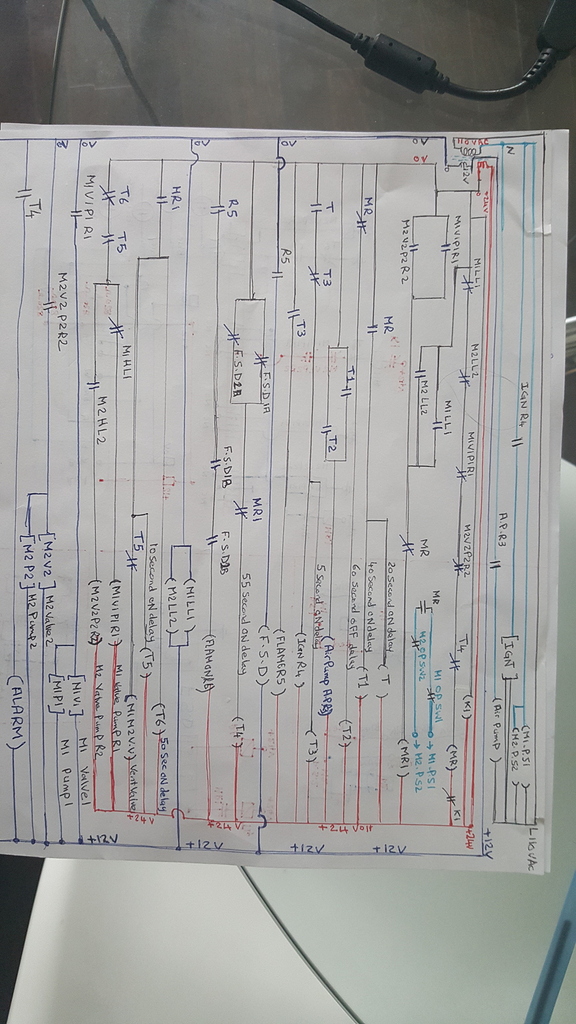 N
L 110 VAC
IGN R4
[IGNT]
(M1.PS1)
(M2.PS2)
A.P.R3
(Air Pump)
110 VAC
12V
+24V
+12V
0V
0V
M1LL1
M2LL2
M1V1P1R1
M2V2P2R2
T4
(K1)
+24V
M1V1P1R1
M2V2P2R2
M1LL1
M2LL2
MR
MR
M1 OP.SW1
M1.PS1
M2.OP.SW2
M2.PS2
(MR)
K1
(MR1)
MR
MR
20 second ON delay
(T)
40 second ON delay
(T1)
60 second OFF delay
+12V
T
T3
T1
T2
(Air Pump APR3)
(T2)
5 second ON delay
(T3)
+24 Volt
T3
(Ign R4)
0V
R5
(FLAMER5)
+12V
F.S.D1A
F.S.D2B
MR1
(F.S.D)
55 second ON delay
(T4)
+24V
R5
F.S.D1B
F.S.D2B
0V
(M1LL1)
(M2LL2)
+12V
MR1
(T6) 50 second ON delay
10 second ON delay
(T5)
T5
(M1M2V.V) Vent Valve
+24V
T6
T5
M1HL1
(M1V1P1R1) M1 Valve Pump R1
M2HL2
(M2V2P2R2) M2 Valve Pump R2
0V
+12V
M1V1P1R1
M1 Valve1
[M1P1] M1 Pump1
M2V2P2R2
[M2V2] M2 Valve2
[M2P2] M2 Pump2
T4
(ALARM)